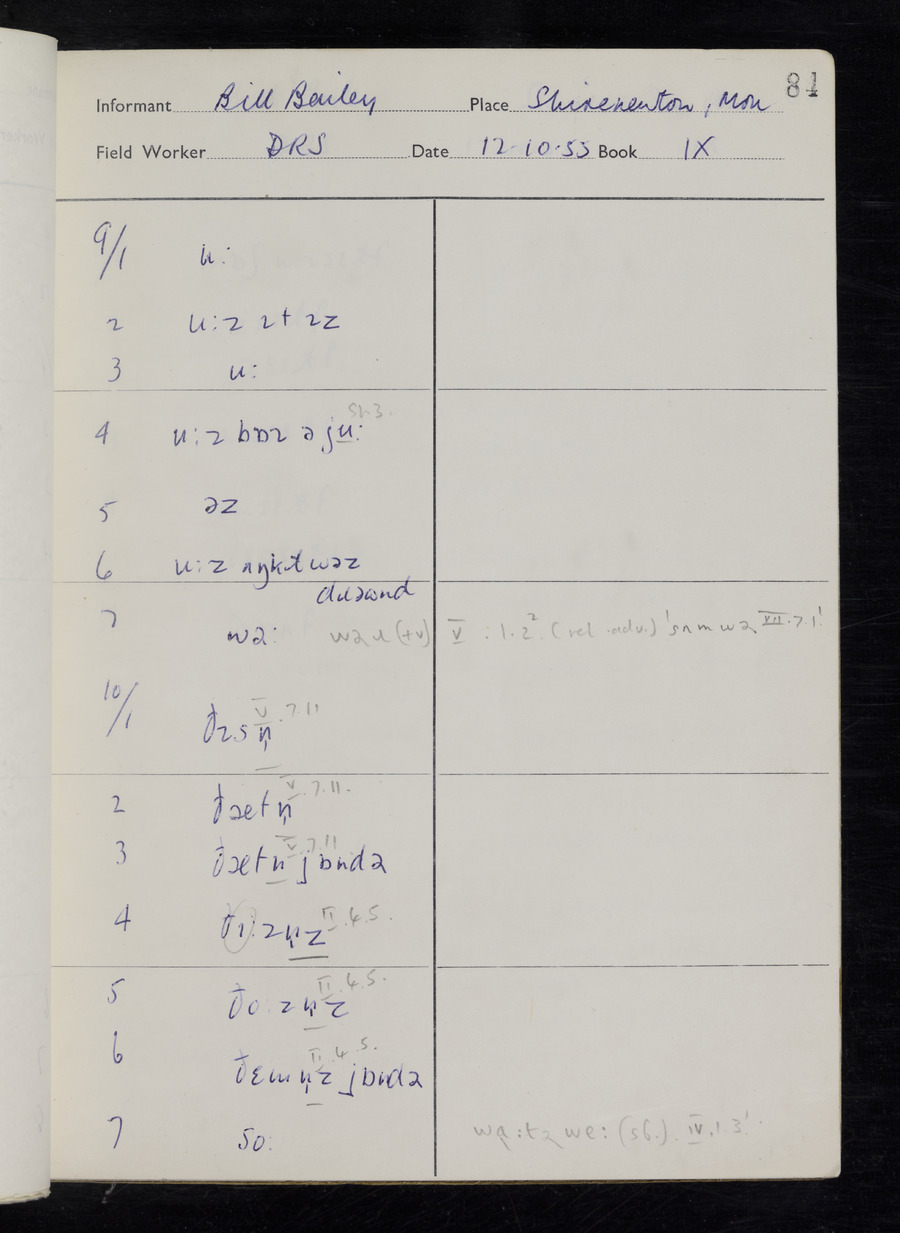 84
Informant Bill Bailey Place Shirenewton, Mon
Field Worker DRS Date 12.10.55 Book IX
9/1 u:
2 u:z ɪt ɪz
3 u:
sh 3.
4 u:z bɒɪ ə ju:
5 əz
6 u:z ʌŋkɫ wəz
dɹaʊnd
7 wə: V : 1.2². (rel. adv.) ˈsʌmwə VII.7.1!
10/1 ðɪsn̩ V.7.11
2 ðætn̩ V.7.11.
3 ðætn̩ jɒndə V.7.11
4 ði:zn̩z II.4.5.
5 ðo:zn̩z II.4.5.
6 ðɛmn̩z jɒndə II.4.5.
7 so: we: (sb.) IV.1.3!